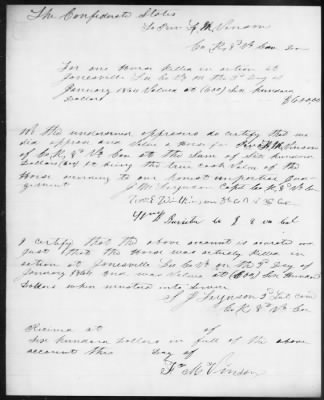 The Confederate States
To Priv F. M. Vinson
Co. K. 8th Va Cav Dr
For one Horse Killed in action at
Jonesville Lee Co Va on the 3d day of
January 1864 Valued at (600) Six hundred
Dollars $600.00
We the undersigned appraisers do certify that we
did appraise and value a Horse for Priv F. M. Vinson
of Co. K, 8th Va Cav at the Sum of Six hundred
Dollars (600) it being the true cash value of the
Horse according to our honest impartial judgement
J M Ferguson Capt Co K 8th Va Co
Wilkinson
8 va Cal
I certify that the above account is accurate and
just & that the Horse was actively Killed in
action at Jonesville Lee Co Va on the 3d day of
January 1864 and was valued at (600) Six Hundred
Dollars when mustered into Service
S J Ferguson 2d Lut Com
Co K. 8th Va Cav
Received at of
Six hundred Dollars in full of the above
account this day of
F. M. Vinson